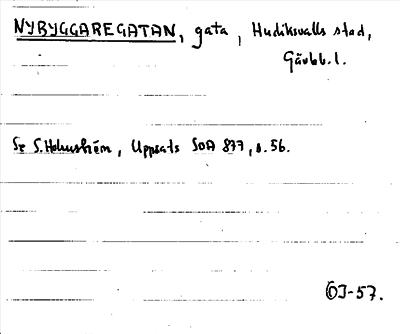 NYBYGGAREGATAN, gata, Hudiksvalls stad,
Gävlb. l.
Se S. Holmström, Uppsats SOA 877, s. 56.
OJ-57.